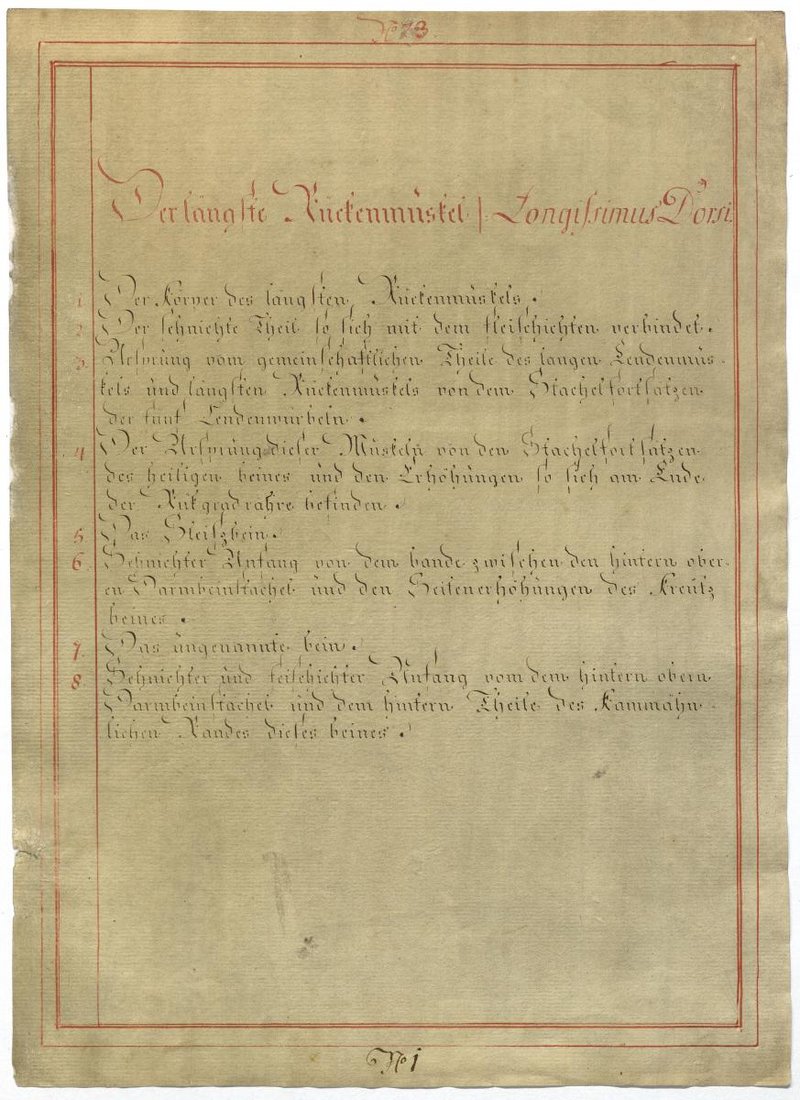 No 73.
Der längste Rückenmüskel | Longissimus Dorsi.
1. Der Körper des längsten Rückenmüskels.
2. Der sehnichte Theil so sich mit dem fleischichten verbindet.
3. Ursprüng vom gemeinschaftlichen Theile des langen Lendenmüs-
kels ünd längsten Rückenmüskels von dem Stachelfortsätzen
der fünf Lendenwürbeln.
4. Der Ursprüng dieser Müskeln von den Stachelfortsätzen
des heiligen beines ünd den Erhöhüngen so sich am Ende
der Rükgradrähre befinden.
5. Das Steiszbein.
6. Sehnichter Anfang von dem bande zwischen den hintern ober-
en Darmbeinstachel ünd den Seitenerhöhüngen des Kreütz
beines.
7. Das üngenannte bein.
8. Sehnichter ünd feischichter Anfang vom dem hintern obern
Darmbeinstachel ünd dem hintern Theile des kammähn-
lichen Randes dieses beines.
No 1